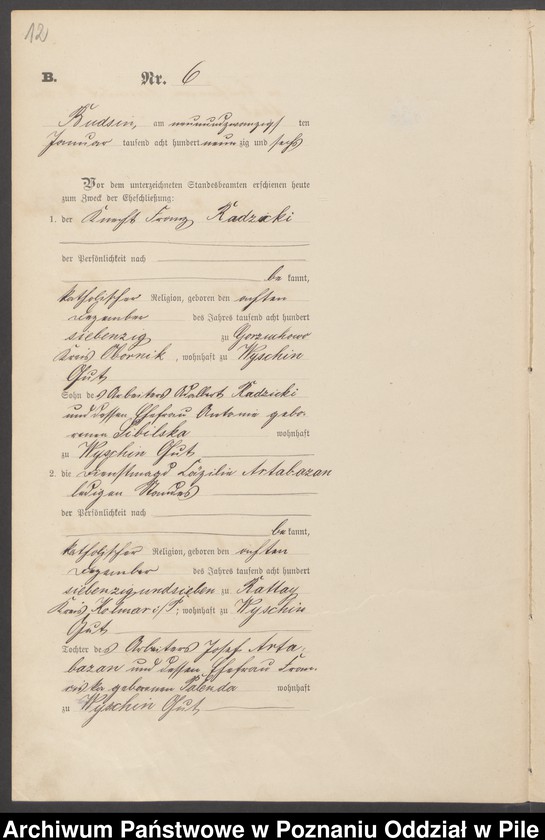 12
B. Nr. 6
Budsin, am neunundzwanzigsten
Januar tausend acht hundert neunzig und sechs
Vor dem unterzeichneten Standesbeamten erschienen heute
zum Zweck der Eheschließung:
1. der Knecht Franz Radzicki
der Persönlichkeit nach
bekannt,
katholischer Religion, geboren den achten
Dezember des Jahres tausend acht hundert
siebenzig zu Gorzuchowo
Kreis Obornik, wohnhaft zu Wyschin
Gut
Sohn des Arbeiters Walbert Radzicki
und dessen Ehefrau Antonie gebo-
renen Sibilska wohnhaft
zu Wyschin Gut
2. die Dienstmagd Cäzilie Artabazan
ledigen Standes
der Persönlichkeit nach
bekannt,
katholischer Religion, geboren den achten
Dezember des Jahres tausend acht hundert
siebenzig und sieben zu Rattay
Kreis Kolmar i/P, wohnhaft zu Wyschin
Gut
Tochter des Arbeiters Josef Arta-
bazan und dessen Ehefrau Fran-
ciska geborenen Palenda wohnhaft
zu Wyschin Gut
Archiwum Państwowe w Poznaniu Oddział w Pile